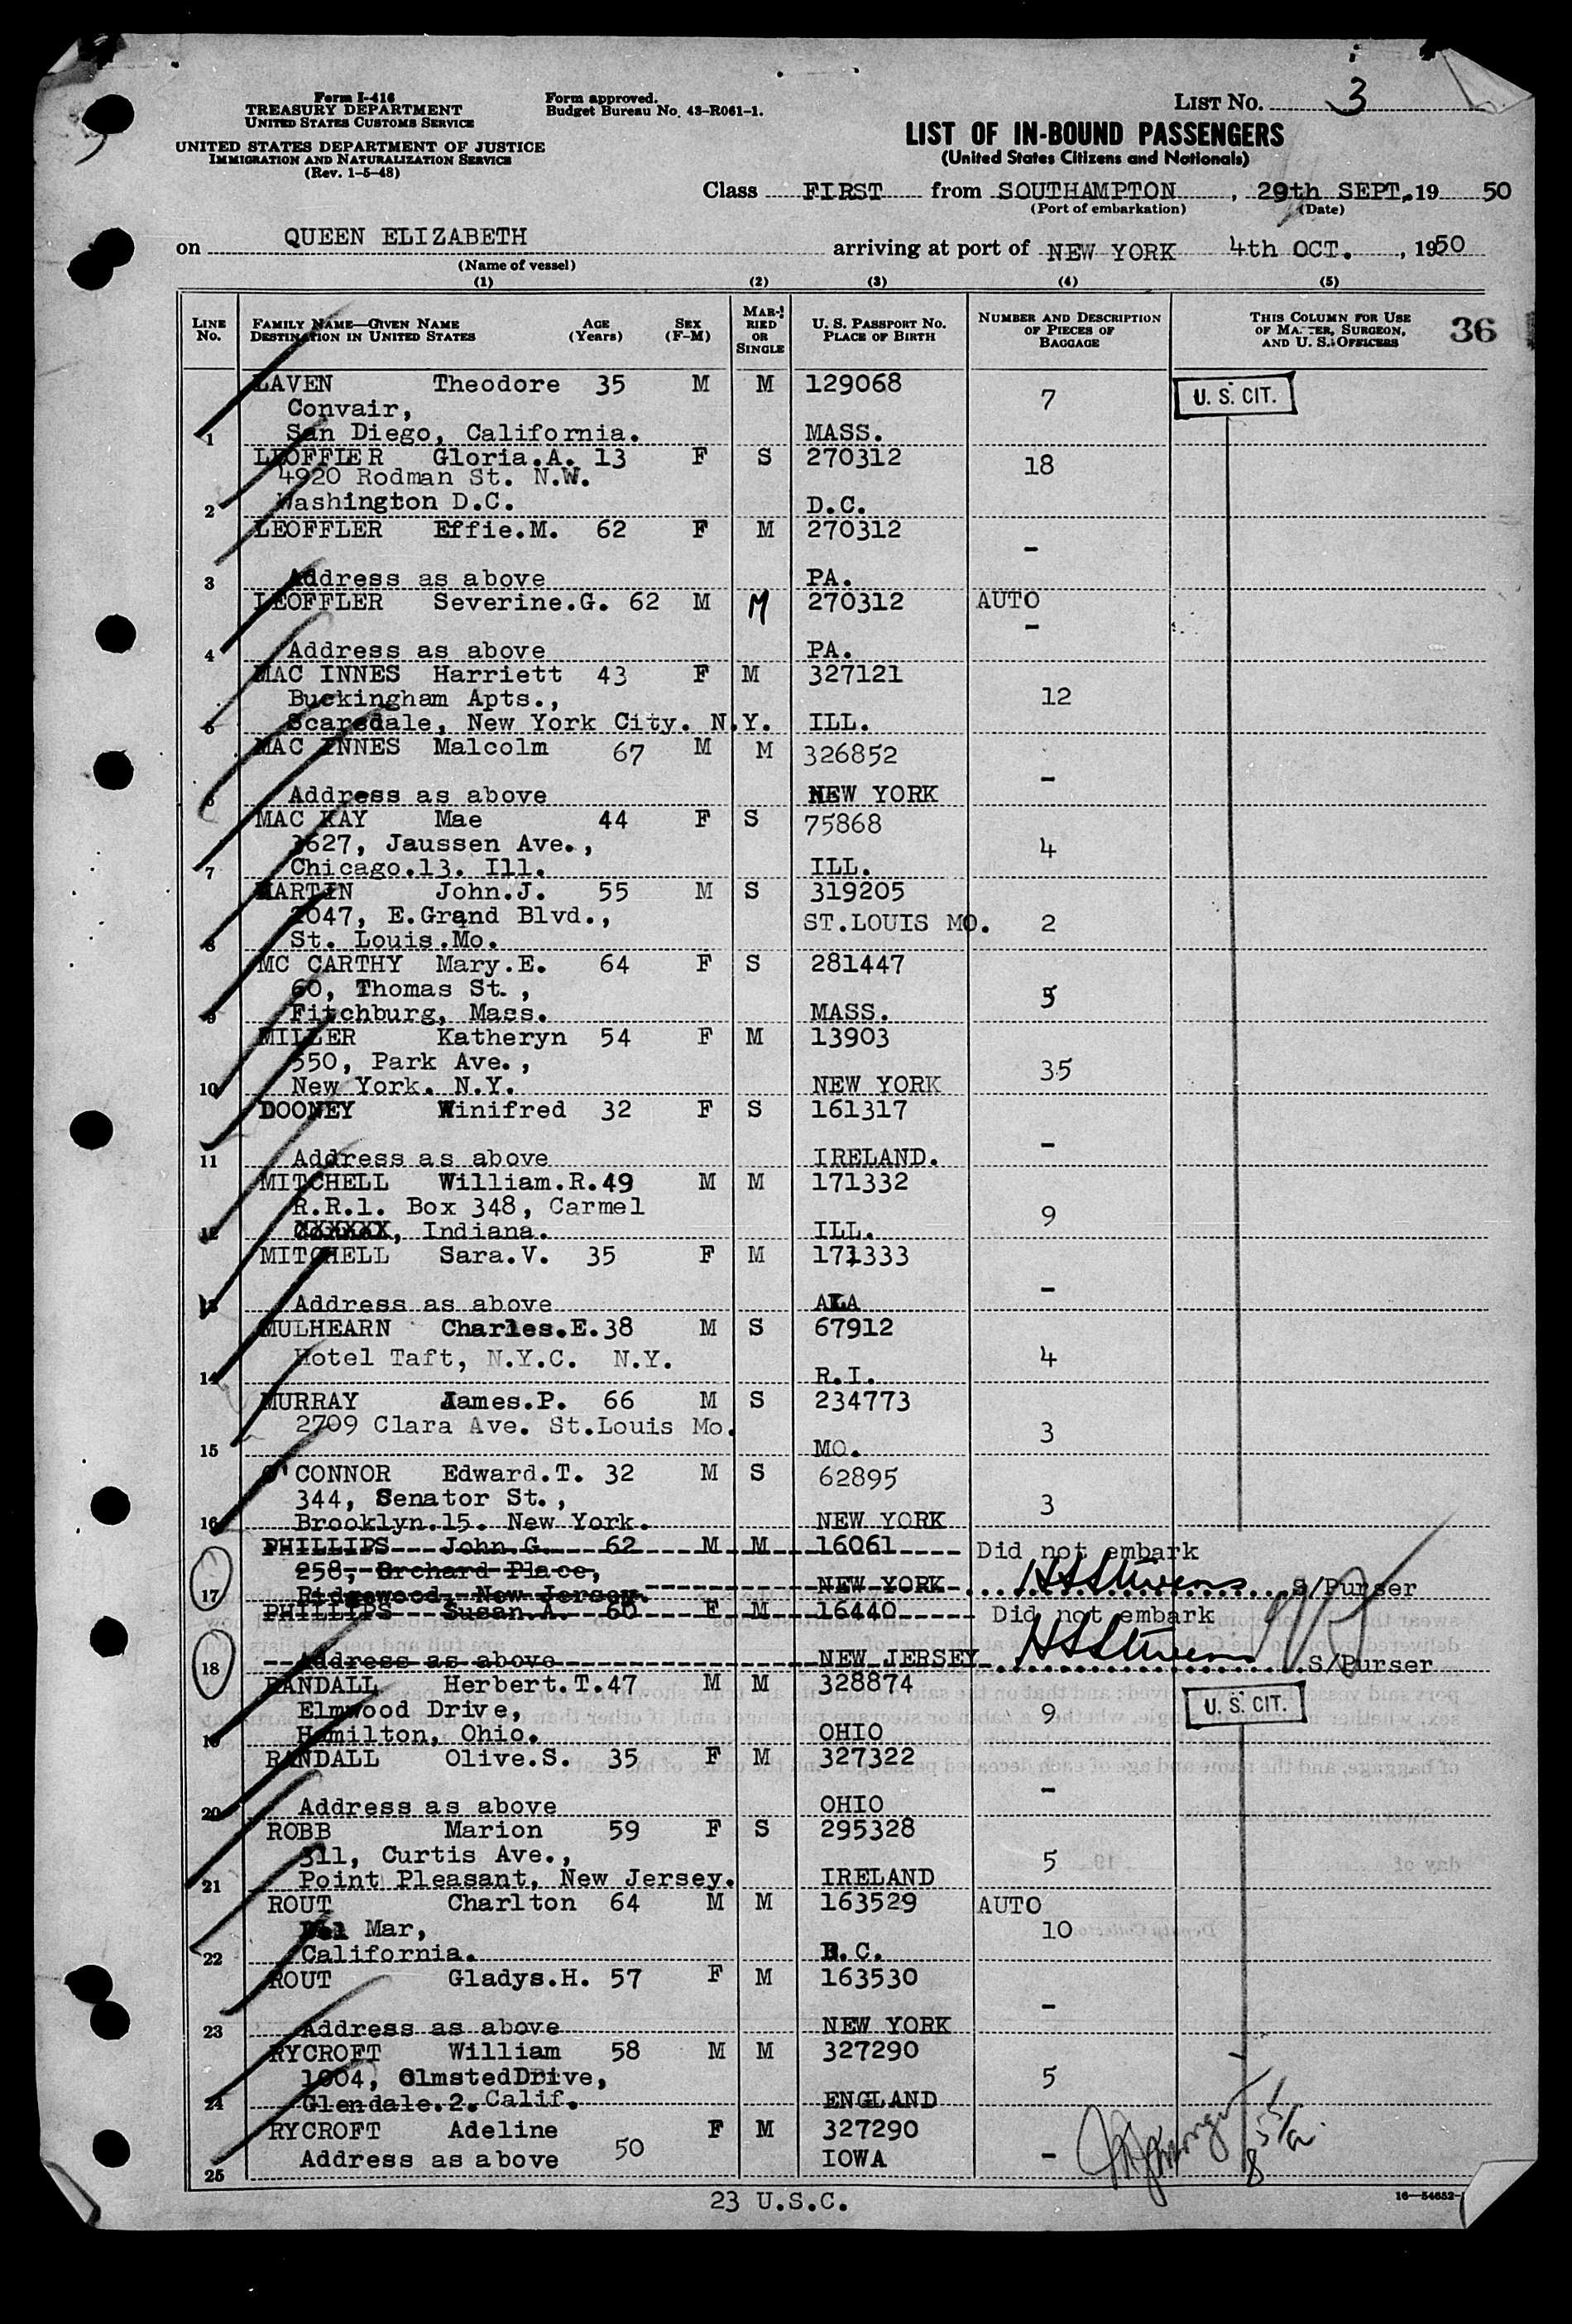 Form I-416
TREASURY DEPARTMENT
UNITED STATES CUSTOMS SERVICE
UNITED STATES DEPARTMENT OF JUSTICE
IMMIGRATION AND NATURALIZATION SERVICE
(Rev. 1-5-48)
Form approved.
Budget Bureau No. 43-R061-1.
LIST No. 3
LIST OF IN-BOUND PASSENGERS
(United States Citizens and Nationals)
Class FIRST from SOUTHAMPTON, 29th SEPT., 19 50
(Port of embarkation) (Date)
on QUEEN ELIZABETH arriving at port of NEW YORK 4th OCT., 1950
(Name of vessel)
(1) (2) (3) (4) (5)
LINE No. FAMILY NAME—GIVEN NAME DESTINATION IN UNITED STATES AGE (Years) SEX (F-M) MARRIED OR SINGLE U. S. PASSPORT No. PLACE OF BIRTH NUMBER AND DESCRIPTION OF PIECES OF BAGGAGE THIS COLUMN FOR USE OF MASTER, SURGEON, AND U. S. OFFICERS 36
LAVEN Theodore 35 M M 129068 7 U. S. CIT.
Convair,
1 San Diego, California. MASS.
LEOFFLER Gloria.A. 13 F S 270312 18
4920 Rodman St. N.W.
2 Washington D.C. D.C.
LEOFFLER Effie.M. 62 F M 270312 -
3 Address as above PA.
LEOFFLER Severine.G. 62 M M 270312 AUTO
-
4 Address as above PA.
MAC INNES Harriett 43 F M 327121
Buckingham Apts., 12
5 Scarsdale, New York City. N.Y. ILL.
MAC INNES Malcolm 67 M M 326852
-
6 Address as above NEW YORK
MAC KAY Mae 44 F S 75868
3627, Jaussen Ave., 4
7 Chicago.13. Ill. ILL.
MARTIN John.J. 55 M S 319205
2047, E.Grand Blvd., ST.LOUIS MO. 2
8 St. Louis.Mo.
MC CARTHY Mary.E. 64 F S 281447
60, Thomas St., 5
9 Fitchburg, Mass. MASS.
MILLER Katheryn 54 F M 13903
550, Park Ave., 35
10 New York. N.Y. NEW YORK
DOONEY Winifred 32 F S 161317
-
11 Address as above IRELAND.
MITCHELL William.R.49 M M 171332
R.R.1. Box 348, Carmel 9
12 XXXXXX, Indiana. ILL.
MITCHELL Sara.V. 35 F M 171333
-
13 Address as above ALA
MULHEARN Charles.E.38 M S 67912
Hotel Taft, N.Y.C. N.Y. 4
14 R.I.
MURRAY James.P. 66 M S 234773
2709 Clara Ave. St.Louis Mo. 3
15 MO.
O'CONNOR Edward.T. 32 M S 62895
344, Senator St., 3
16 Brooklyn.15. New York. NEW YORK
PHILLIPS John G. 62 M M 16061 Did not embark
258, Orchard Place,
17 Ridgewood, New Jersey. NEW YORK S/Purser
PHILLIPS Susan.A. 60 F M 16440 Did not embark
18 Address as above NEW JERSEY S/Purser
RANDALL Herbert.T.47 M M 328874 U. S. CIT.
Elmwood Drive, 9
19 Hamilton, Ohio. OHIO
RANDALL Olive.S. 35 F M 327322
-
20 Address as above OHIO
ROBB Marion 59 F S 295328
311, Curtis Ave., 5
21 Point Pleasant, New Jersey. IRELAND
ROUT Charlton 64 M M 163529 AUTO
Del Mar, 10
22 California. B.C.
ROUT Gladys.H. 57 F M 163530
-
23 Address as above NEW YORK
RYCROFT William 58 M M 327290
1004, OlmstedDrive, 5
24 Glendale.2. Calif. ENGLAND
RYCROFT Adeline 50 F M 327290
25 Address as above IOWA -
23 U.S.C.